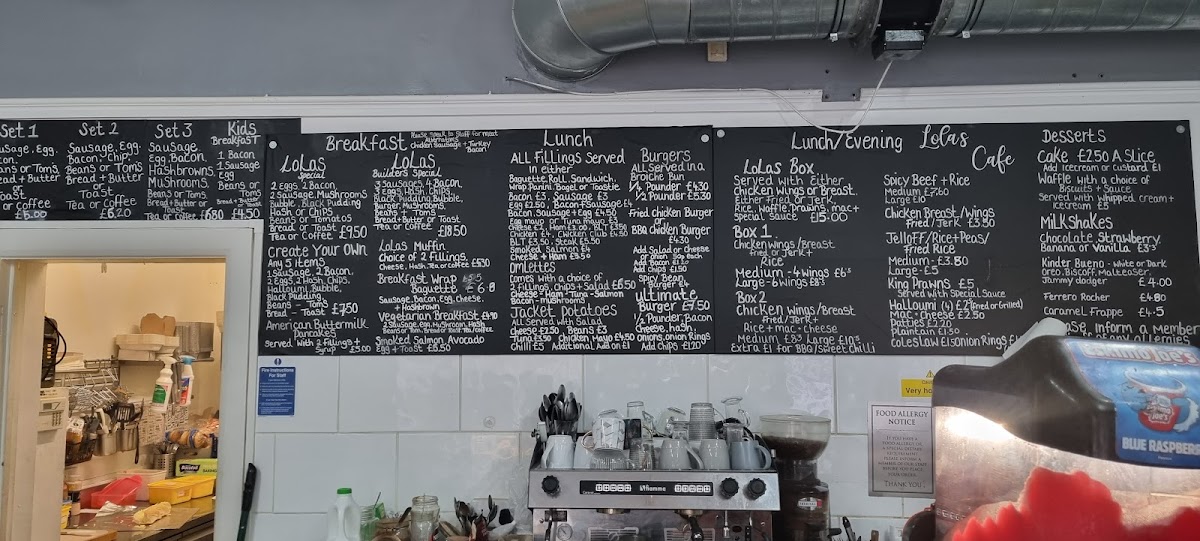 Set 1
Egg, Bacon.
Beans or Toms
Bread + Butter
or
Toast
or Coffee
£5.00
Set 2
Sausage, Egg,
Bacon, Chips,
Beans or Toms
Bread + Butter
or
Toast
Tea or Coffee
£6.20
Set 3
Sausage
Egg, Bacon,
Hashbrowns,
Mushrooms,
Beans or Toms
Bread + Butter or
Toast
Tea or Coffee £6.80
Kids
Breakfast
1 Bacon
1 Sausage
1 Egg
Beans or
Toms
Bread or
Toast
£4.50
Breakfast
Please speak to Staff for meat
Alternatives
chicken Sausage + Turkey
Bacon
Lolas
Special
2 Eggs, 2 Bacon,
2 Sausage, Mushrooms
Bubble, Black Pudding
Hash or Chips
Beans or Tomatos
Bread or Toast
Tea or Coffee £9.50
Create Your Own
Any 5 items
1 Sausage, 2 Bacon,
2 Eggs, 2 Hash, Chips,
Halloumi, Bubble,
Black Pudding
Beans - Toms
Bread - Toast £7.50
American Buttermilk
Pancakes
Served With 2 Fillings +
Syrup £5.00
Lolas
Builders Special
3 Sausages, 4 Bacon,
3 Eggs, Hash, Chips,
Black Pudding, Bubble,
Burger, Mushrooms,
Beans + Toms
Bread + Butter or Toast
Tea or Coffee £18.50
Lolas Muffin
Choice of 2 Fillings,
Cheese, Hash, Tea or Coffee £5.30
Breakfast Wrap
Baguette
Sausage, Bacon, Egg, Cheese,
+ Hashbrown
Vegetarian Breakfast
2 Sausage, Egg, Mushroom, Hash
Beans or Tom, Bread or Toast, Tea/Coffee
Smoked Salmon, Avocado
Egg + Toast £8.50
Lunch
All Fillings Served
in either
Baguette Roll, Sandwich,
Wrap, Panini, Bagel or Toastie
Bacon £3, Sausage £3
Egg £2.50, Bacon + Sausage £4
Bacon, Sausage + Egg £4.50
Egg mayo or Tuna mayo £3
Chicken £4, Chicken Club £4.50
BLT £3.50, Steak £5.50
Smoked Salmon £4
Cheese + Ham £3.50
Omlettes
Comes with a choice of
2 Fillings, Chips + Salad £6.50
Cheese - Ham - Tuna - Salmon
Bacon - Mushrooms
Jacket Potatoes
All Served with Salad
Cheese £2.50, Beans £3
Tuna £3.50 Chicken Mayo £4.50
Chilli £5 Additional Add on £1
Burgers
All Served in a
Broche Bun
1/4 Pounder £4.30
1/2 Pounder £5.30
Fried Chicken Burger
or
BBQ Chicken Burger
£4.30
Add Salad or Cheese
or onion 50p each
Bacon £1.20
Add Chips £1.50
Spicy Bean
Burger £4
Ultimate
Burger £7.50
1/2 Pounder, Bacon
Cheese, Hash,
onions, onion Rings
Add Chips £1.20
Lunch/Evening
Lolas
Cafe
Lolas Box
Served with Either
Chicken Wings or Breast
Either Fried or Jerk,
Rice, Waffle, Prawns, Mac +
Special Sauce £15:00
Box 1
Chicken wings/Breast
Fried or Jerk +
Rice
Medium - 4 wings £6
Large - 6 wings £8
Box 2
Chicken wings/Breast
Fried/Jerk +
Rice + Mac + Cheese
Medium £8 Large £10
Extra £1 for BBQ/Sweet Chilli
Spicy Beef + Rice
Medium £7.60
Large £10
Chicken Breast/Wings
Fried/Jerk £3.50
Jelloff/Rice + Peas/
Fried Rice
Medium - £3.80
Large - £5
King Prawns £5
Served with Special Sauce
Halloumi (4) £2 (Fried or Grilled)
Mac + Cheese £2.50
Patties £2.20
Plantain £1.50
Coleslaw £1
Desserts
Cake £2.50 A Slice
Add Icecream or custard £1
Waffle with a choice of
Biscuits + Sauce
Served with whipped cream +
icecream £5
Milkshakes
Chocolate, Strawberry
Banana or Vanilla
Kinder Bueno - White or Dark
Oreo, Biscoff, Malteaser,
Jammy dodger £4.00
Ferrero Rocher £4.80
Caramel Frappe £4.5
inform a Member
of any allergies
Fire Instructions
For Staff
fiamme
Very ho
FOOD ALLERGY
NOTICE
IF YOU HAVE A
FOOD ALLERGY OR
A SPECIAL DIETARY
REQUIREMENT
PLEASE INFORM A
MEMBER OF STAFF
THANK YOU
BLUE RASPBER